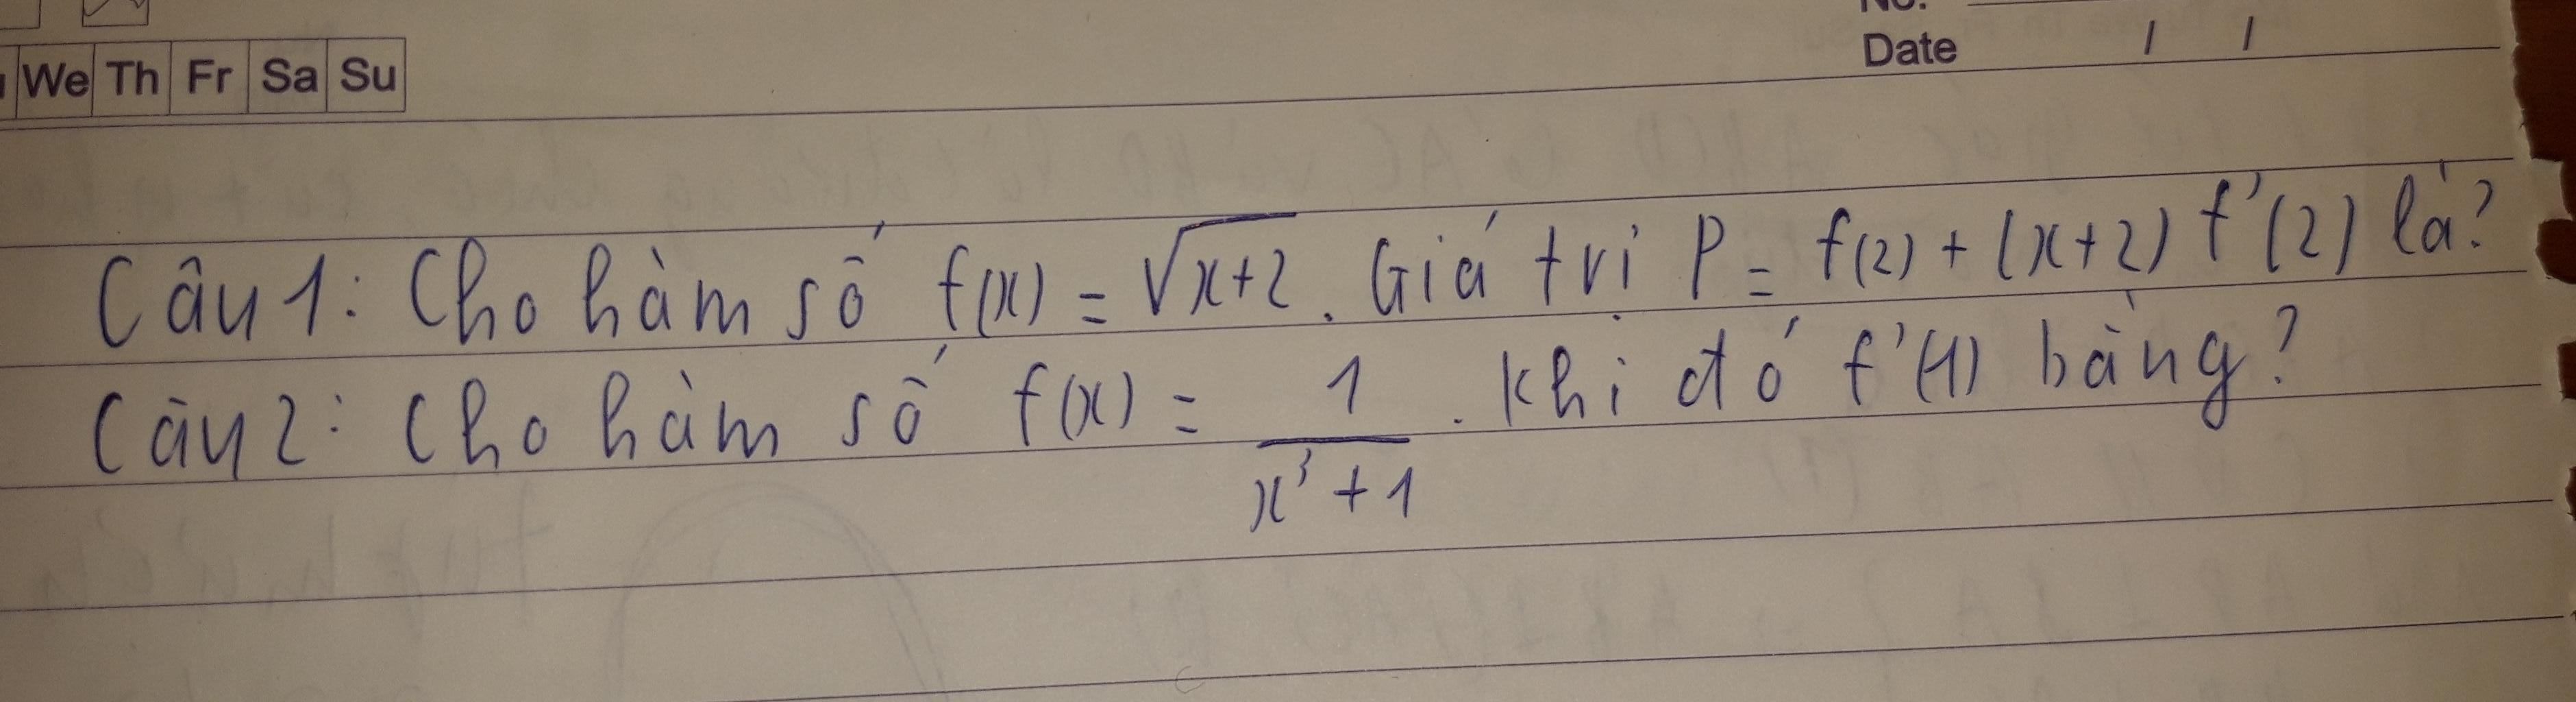 No.
We Th Fr Sa Su
Date / /
Câu 1: Cho hàm số f(x) = √x+2. Giá trị P = f(2) + (x+2) f'(2) là?
Câu 2: Cho hàm số f(x) = 1/(x³+1). Khi đó f'(1) bằng?